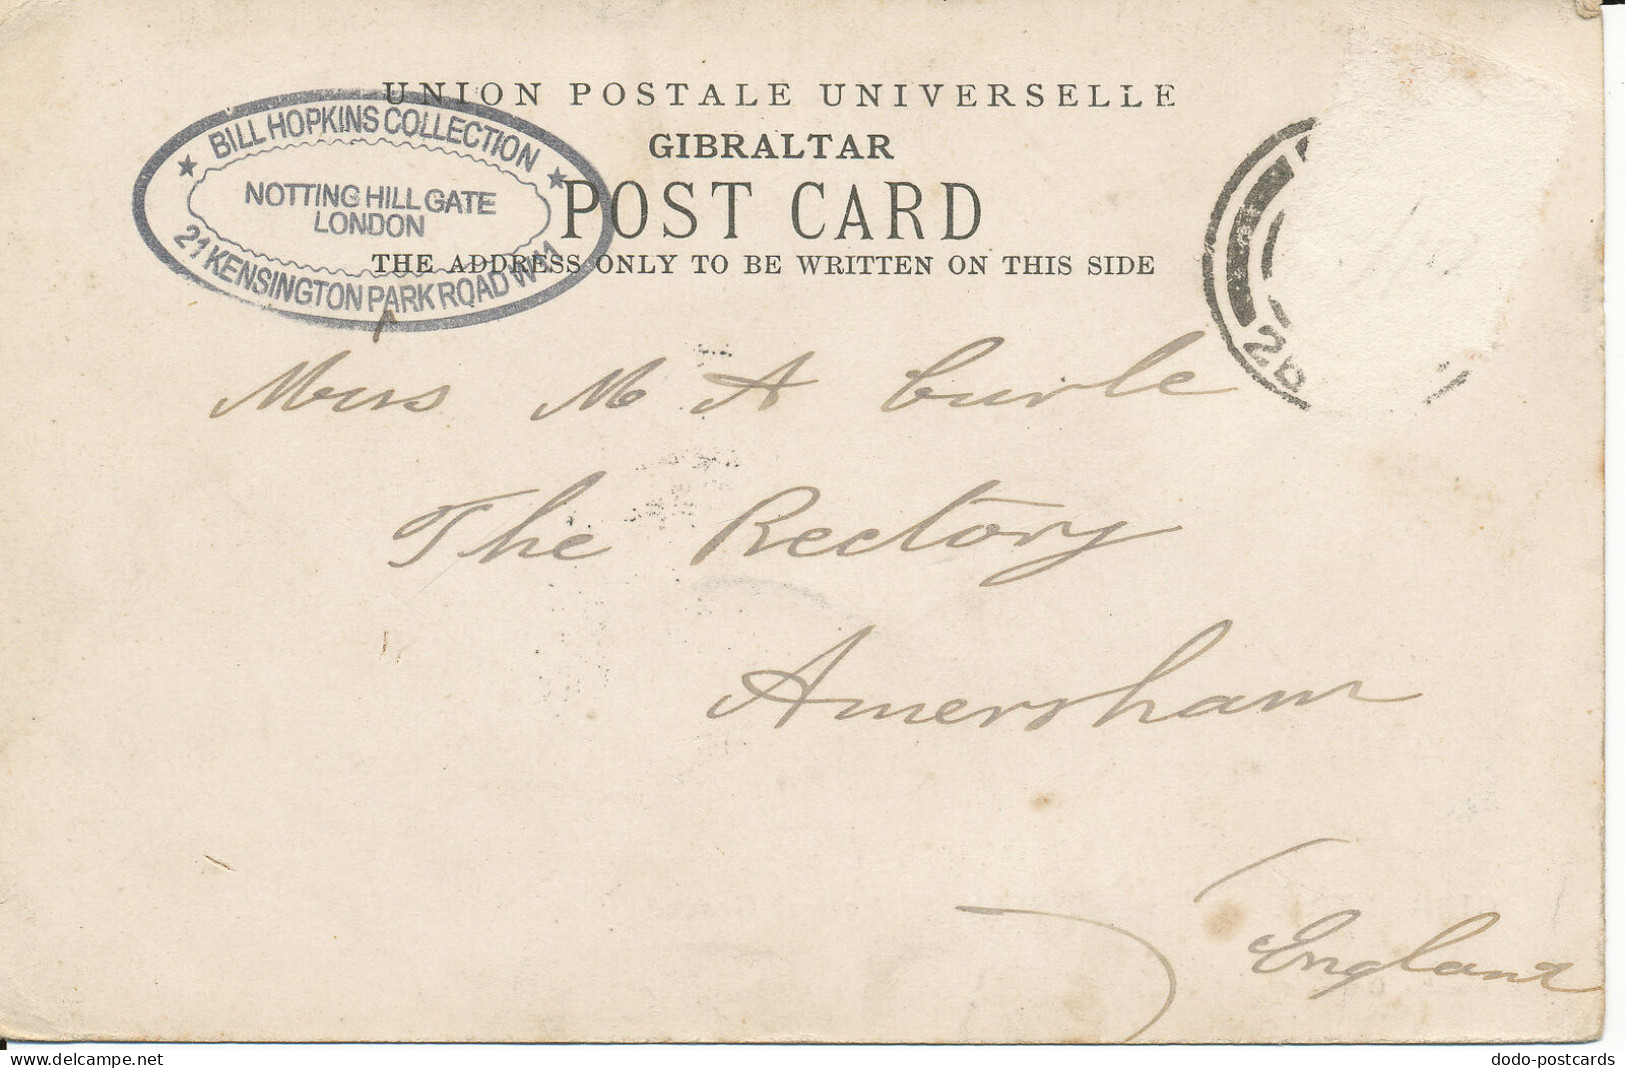 UNION POSTALE UNIVERSELLE
GIBRALTAR
POST CARD
THE ADDRESS ONLY TO BE WRITTEN ON THIS SIDE
★ BILL HOPKINS COLLECTION ★
NOTTING HILL GATE
LONDON
21 KENSINGTON PARK ROAD W11
M A Curle
The Rectory
Amersham
England
delcampe.net
dodo-postcards